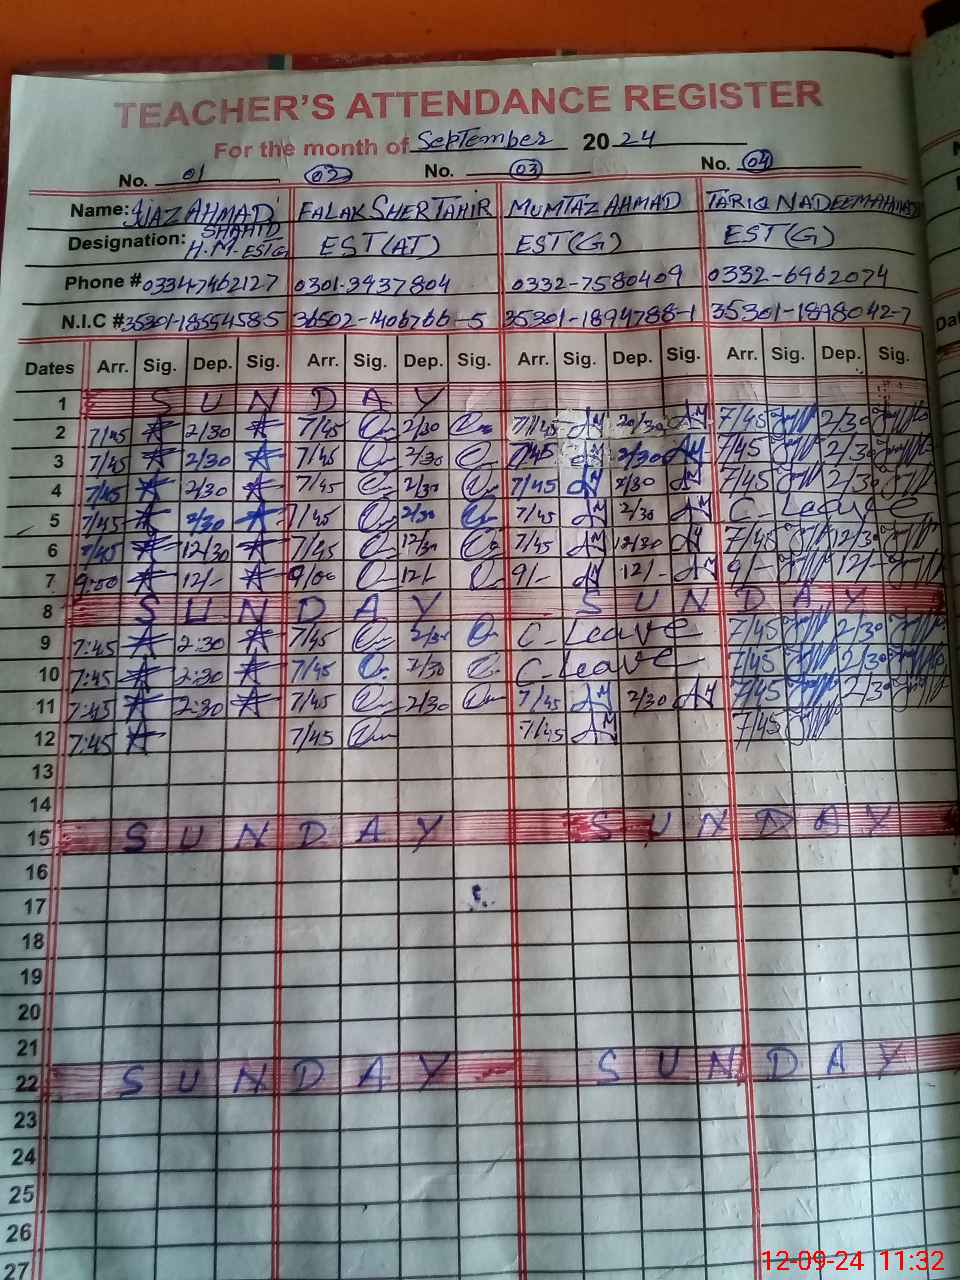 TEACHER'S ATTENDANCE REGISTER
For the month of September 2024
No. 01 02 No. 03 No. 04
Name: AHMAD FALAK SHER TAHIR MUMTAZ AHMAD TARIQ NADEEM
SHAHID
Designation: H.M. EST(G) EST(AT) EST(G) EST(G)
Phone # 03347462127 0301-3937804 0332-7580409 0332-6962074
N.I.C # 35301-1894788-1 35301-1898042-7
Dates Arr. Sig. Dep. Sig. Arr. Sig. Dep. Sig. Arr. Sig. Dep. Sig. Arr. Sig. Dep. Sig.
1 SUNDAY
2 7/45 2/30 7/45 2/30 7/45 2/30 7/45 2/30
3 7/45 2/30 7/45 2/30 7/45 2/30 7/45 2/30
4 7/45 2/30 7/45 2/30 7/45 2/30 7/45 2/30
5 7/45 2/30 7/45 2/30 7/45 2/30 C. Leave
6 7/45 12/30 7/45 12/30 7/45 12/30 7/45 12/30
7 9:00 12/- 9/00 12/- 9/- 12/- 9/- 12/-
8 SUNDAY SUNDAY
9 7:45 2:30 7/45 2/30 C. Leave 7/45 2/30
10 7:45 2:30 7/45 2/30 C. Leave 7/45 2/30
11 7:45 2:30 7/45 2/30 7/45 2/30 7/45 2/30
12 7:45 7/45 7/45 7/45
13
14
15 SUNDAY SUNDAY
16
17
18
19
20
21
22 SUNDAY SUNDAY
23
24
25
26
27
12-09-24 11:32